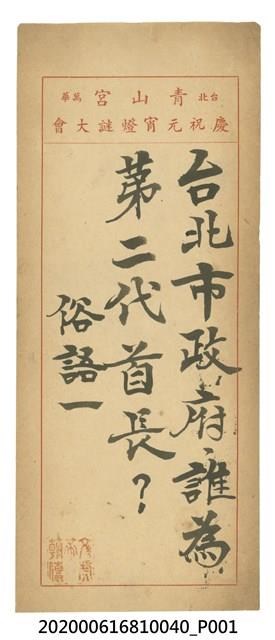 台北 青山宮 萬華
慶祝元宵燈謎大會
台北市政府誰為
第二代首長？
俗語一
202000616810040_P001